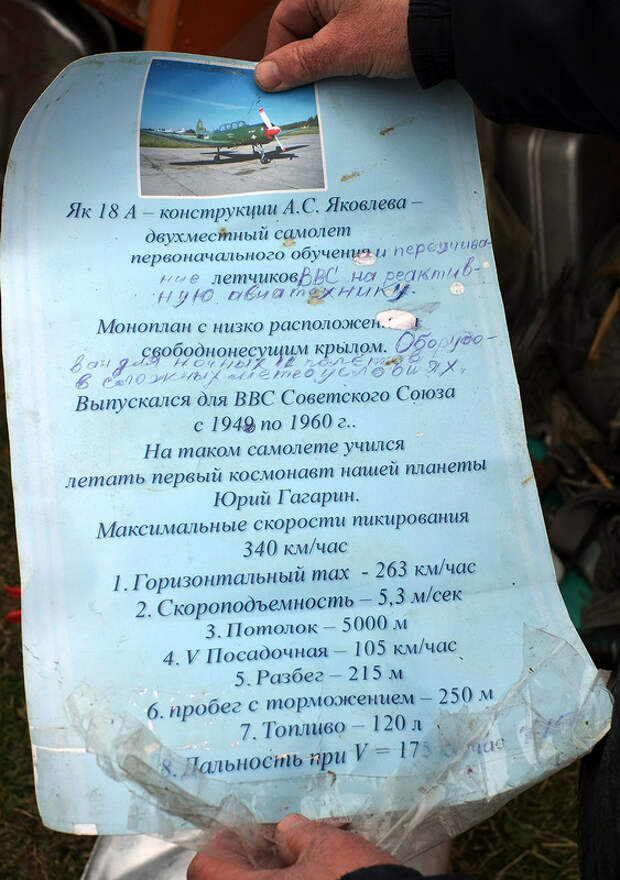 Як 18 А – конструкции А.С. Яковлева –
двухместный самолет
первоначального обучения и переучива-
ние летчиков ВВС на реактив-
ную авиатехнику.
Моноплан с низко расположен.
свободнонесущим крылом. Оборудо-
ван для ночных и полетов
в сложных метеоусловиях.
Выпускался для ВВС Советского Союза
с 1949 по 1960 г..
На таком самолете учился
летать первый космонавт нашей планеты
Юрий Гагарин.
Максимальные скорости пикирования
340 км/час
1. Горизонтальный max - 263 км/час
2. Скороподъемность – 5,3 м/сек
3. Потолок – 5000 м
4. V Посадочная – 105 км/час
5. Разбег – 215 м
6. пробег с торможением – 250 м
7. Топливо – 120 л
8. Дальность при V = 175 час